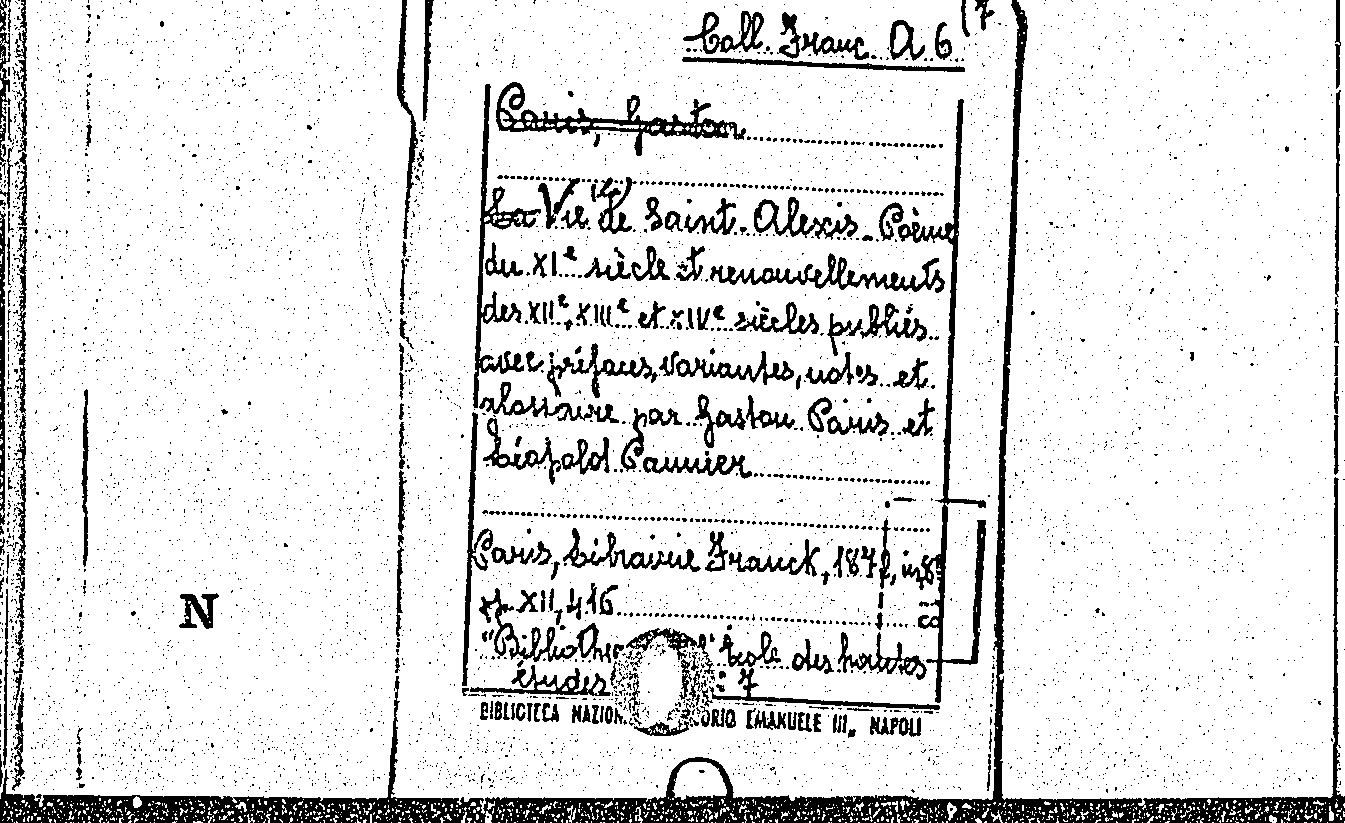 (7
Coll. Franc. A 6
Paris, Gaston
La Vie (La) de Saint-Alexis - Poème
du XIe siècle et renouvellements
des XIIe, XIIIe et XIVe siècles publiés
avec préfaces, variantes, notes et
glossaire par Gaston Paris et
Léopold Pannier
Paris, Librairie Franck, 1872, in 8º
pp. XII, 416
"Biblioth École des hautes
études : 7
N
BIBLIOTECA NAZION ORIO EMANUELE III, NAPOLI